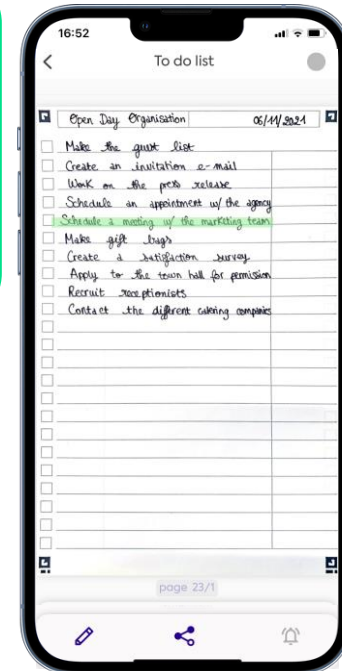 16:52
To do list
Open Day Organisation 06/11/2021
Make the guest list
Create an invitation e-mail
Work on the press release
Schedule an appointment w/ the agency
Schedule a meeting w/ the marketing team
Make gift bags
Create a satisfaction survey
Apply to the town hall for permission
Recruit receptionists
Contact the different catering companies
page 23/1